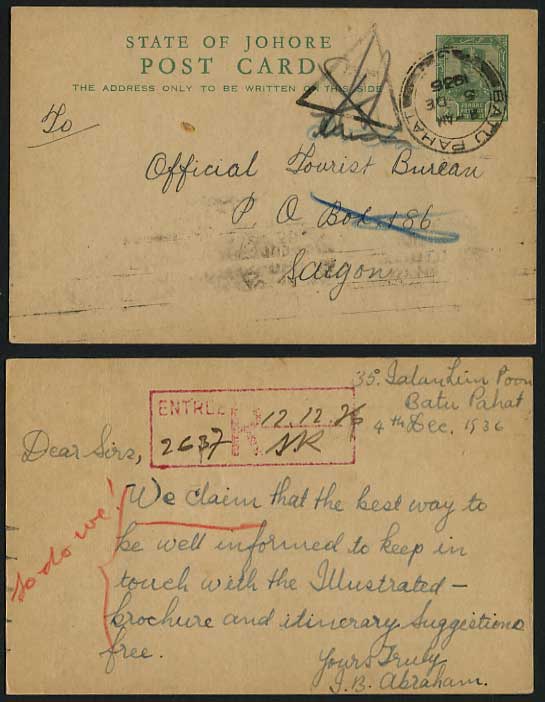 STATE OF JOHORE
POST CARD
THE ADDRESS ONLY TO BE WRITTEN ON THIS SIDE
BATU PAHAT
AM
5 DE
1936
JOHORE
To
Official Tourist Bureau
P O Box 186
Saigon
35. Jalan Lim Poon
Batu Pahat
4th Dec. 1936
ENTREE
R
12.12.36
2637
Dear Sirs,
So do we!
We claim that the best way to
be well informed to keep in
touch with the Illustrated –
brochure and itinerary Suggestions
free.
Yours Truly
J. B. Abraham.